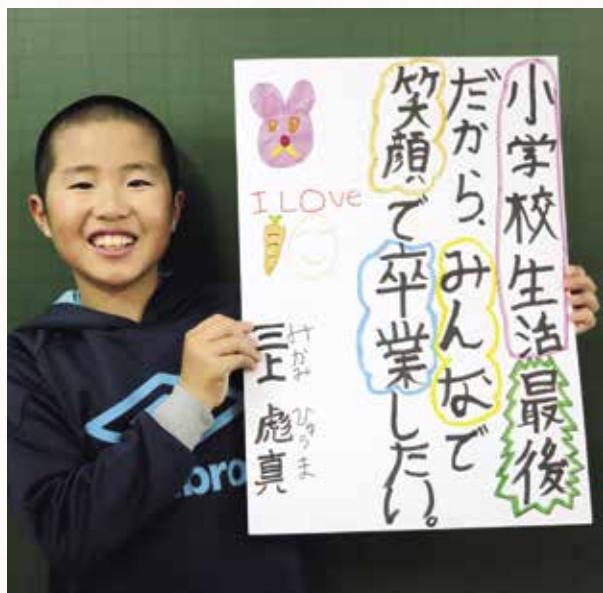 小学校生活最後
だから、みんなで
笑顔で卒業したい。
I LOVe
三上 彪真
みかみ ひゅうま
bro